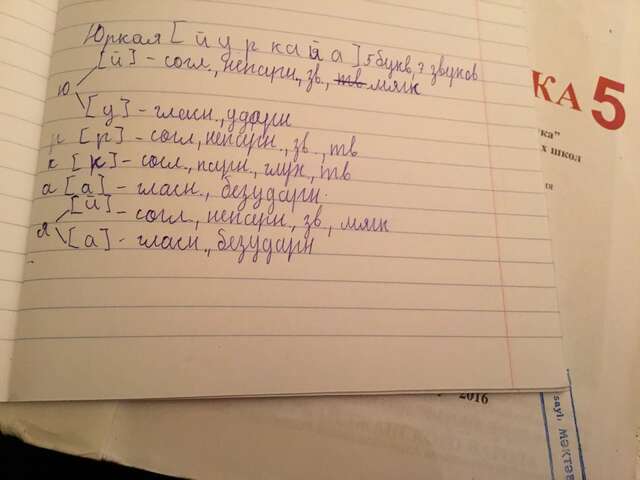 Юркая [ й у р к а й а ] 5 букв, 7 звуков
[й] - согл., непарн., зв., тв мягк
ю
[у] - гласн., ударн
р [р] - согл, непарн., зв., тв
к [к] - согл., парн., глух., тв
а [а] - гласн., безударн.
[й] - согл, непарн., зв., мягк
я
[а] - гласн., безударн
КА 5
ка"
х школ
2016
sayi, məktəb